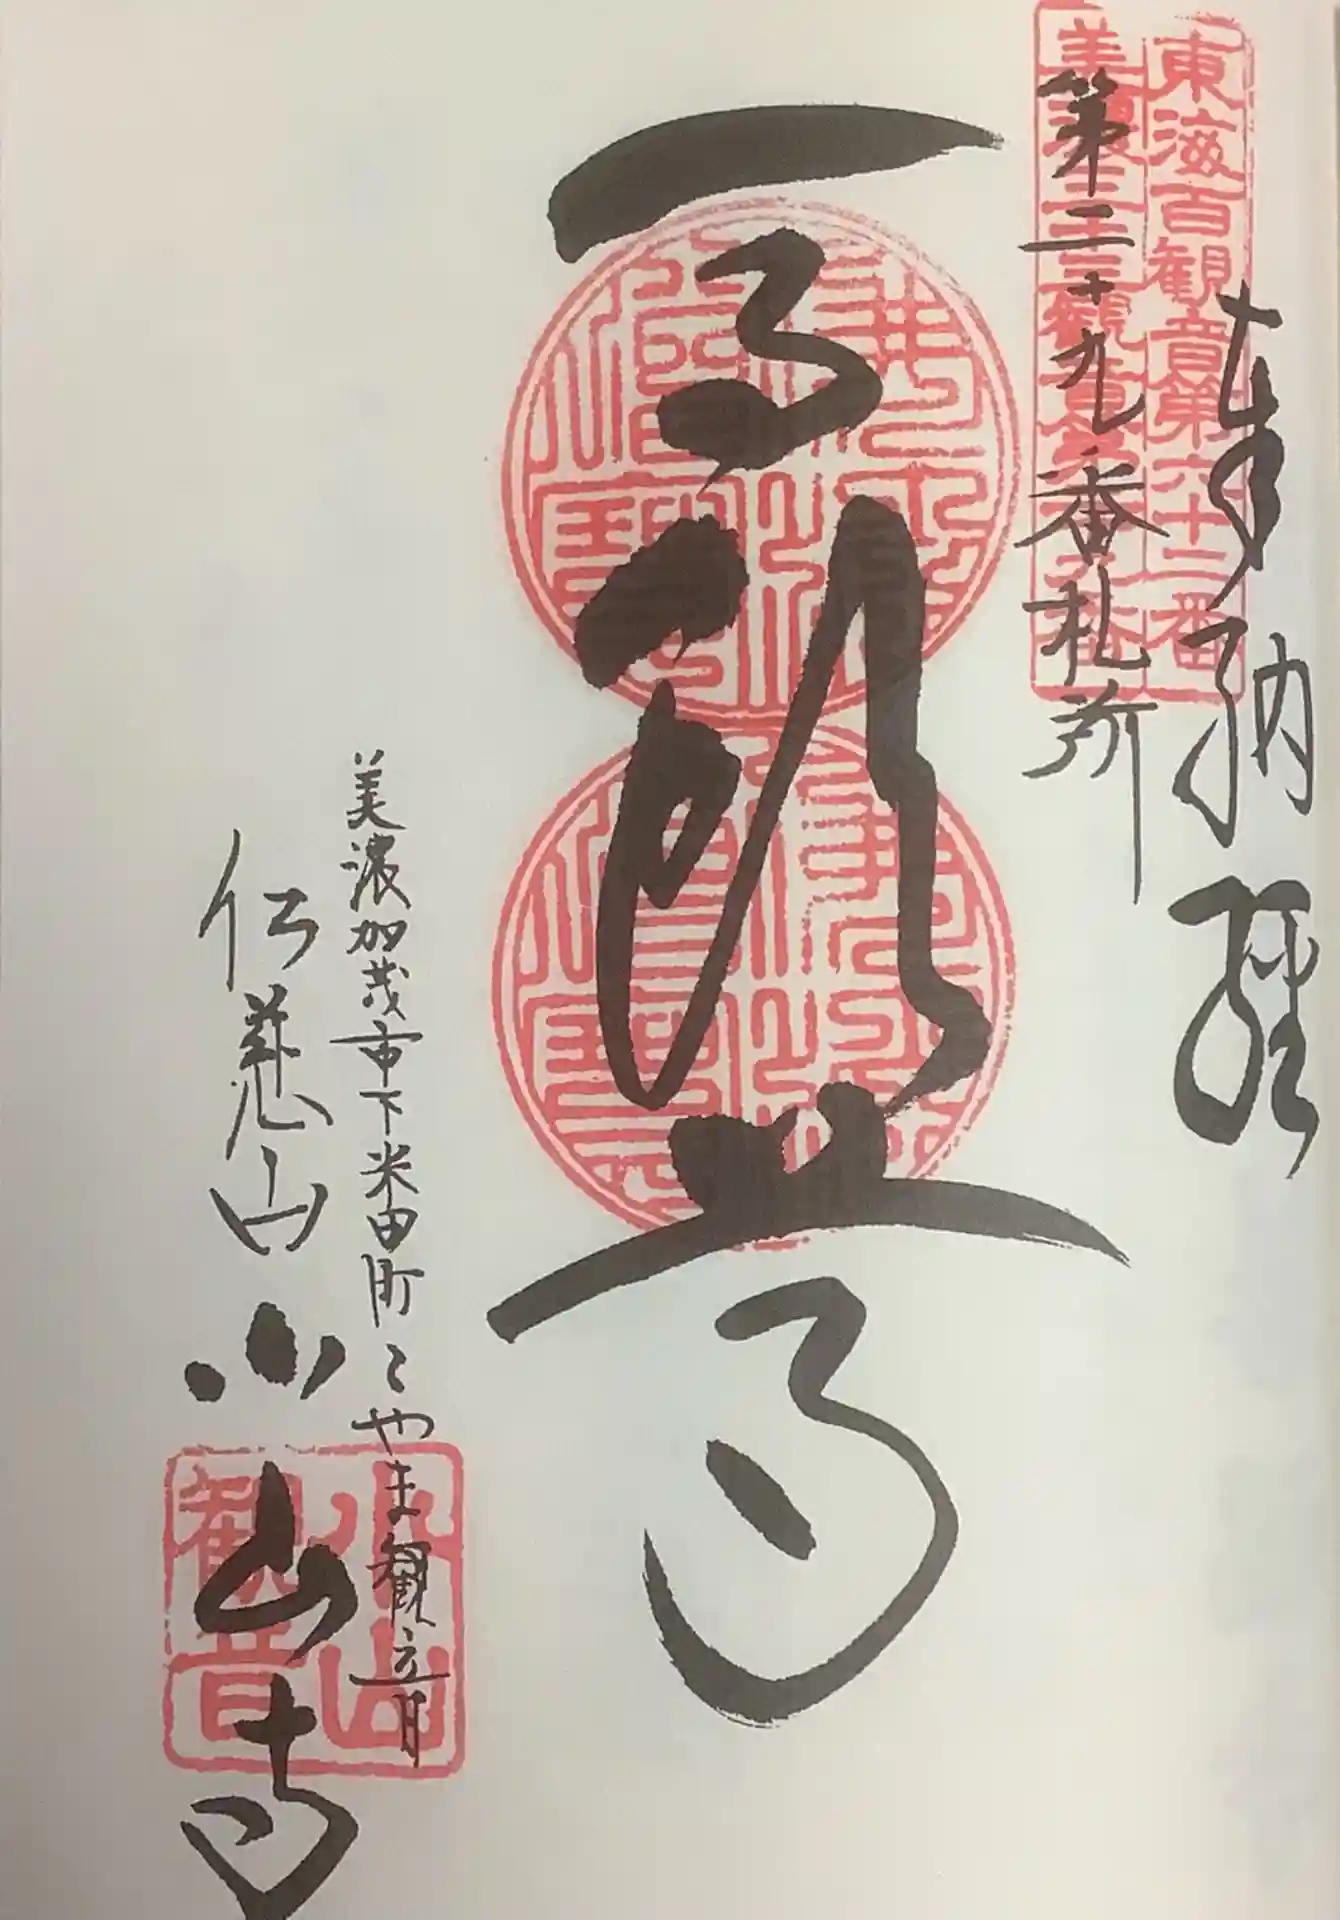 東海百観音第六十二番
美濃三十三観音第二十九番
奉納経
第二十九番札所
馬頭尊
美濃加茂市下米田町
こやま観音
仏慈山
小山寺
小山
観音